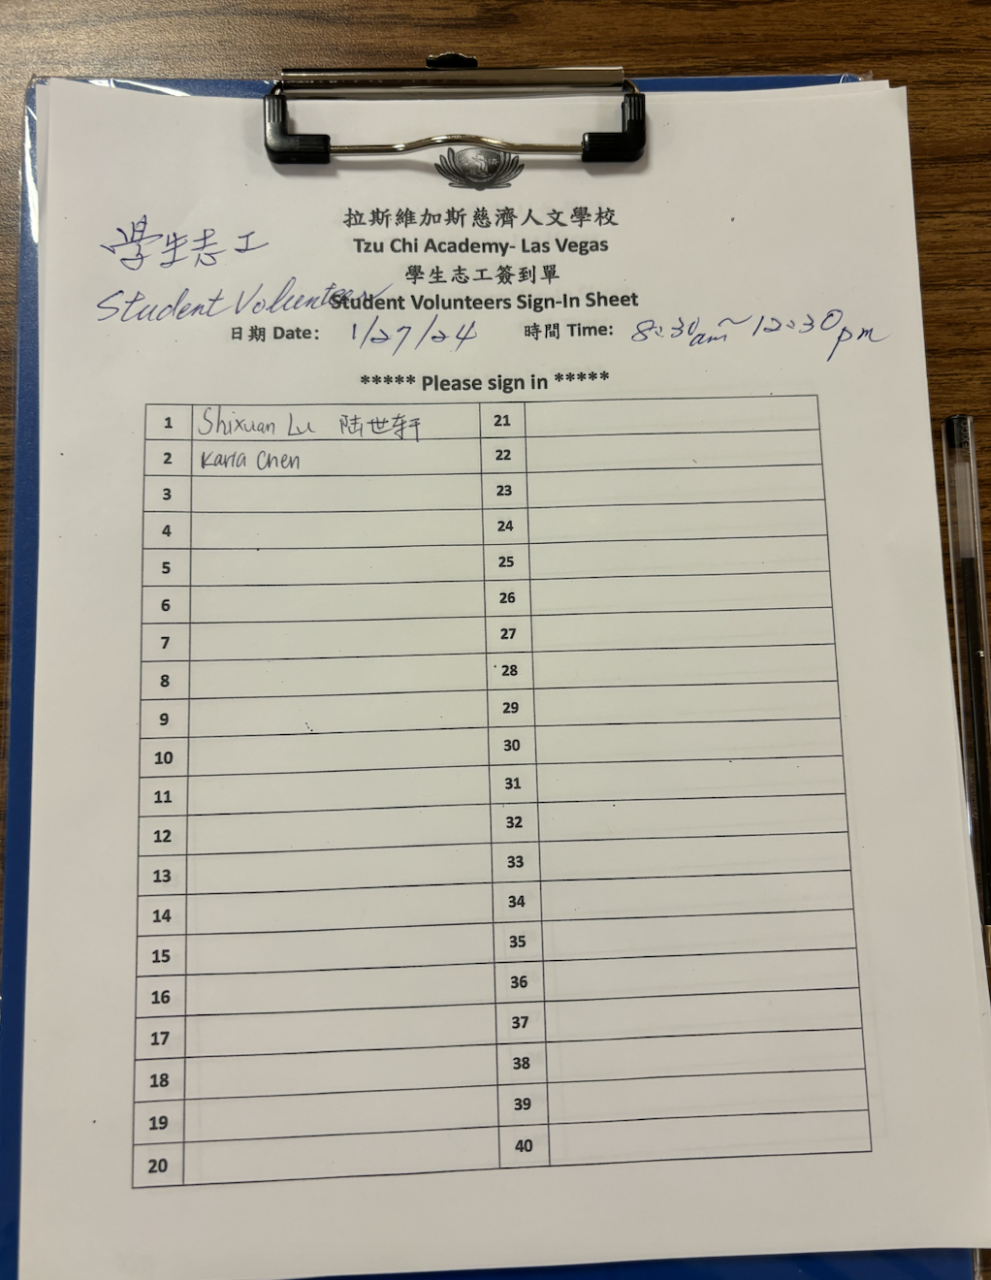 拉斯維加斯慈濟人文學校
學生志工
Tzu Chi Academy- Las Vegas
學生志工簽到單
Student Volunteer
Student Volunteers Sign-In Sheet
日期 Date: 1/27/24 時間 Time: 8:30am ~ 12:30pm
***** Please sign in *****
1 Shixuan Lu 陆世轩 21
2 Karla Chen 22
3 23
4 24
5 25
6 26
7 27
8 28
9 29
10 30
11 31
12 32
13 33
14 34
15 35
16 36
17 37
18 38
19 39
20 40